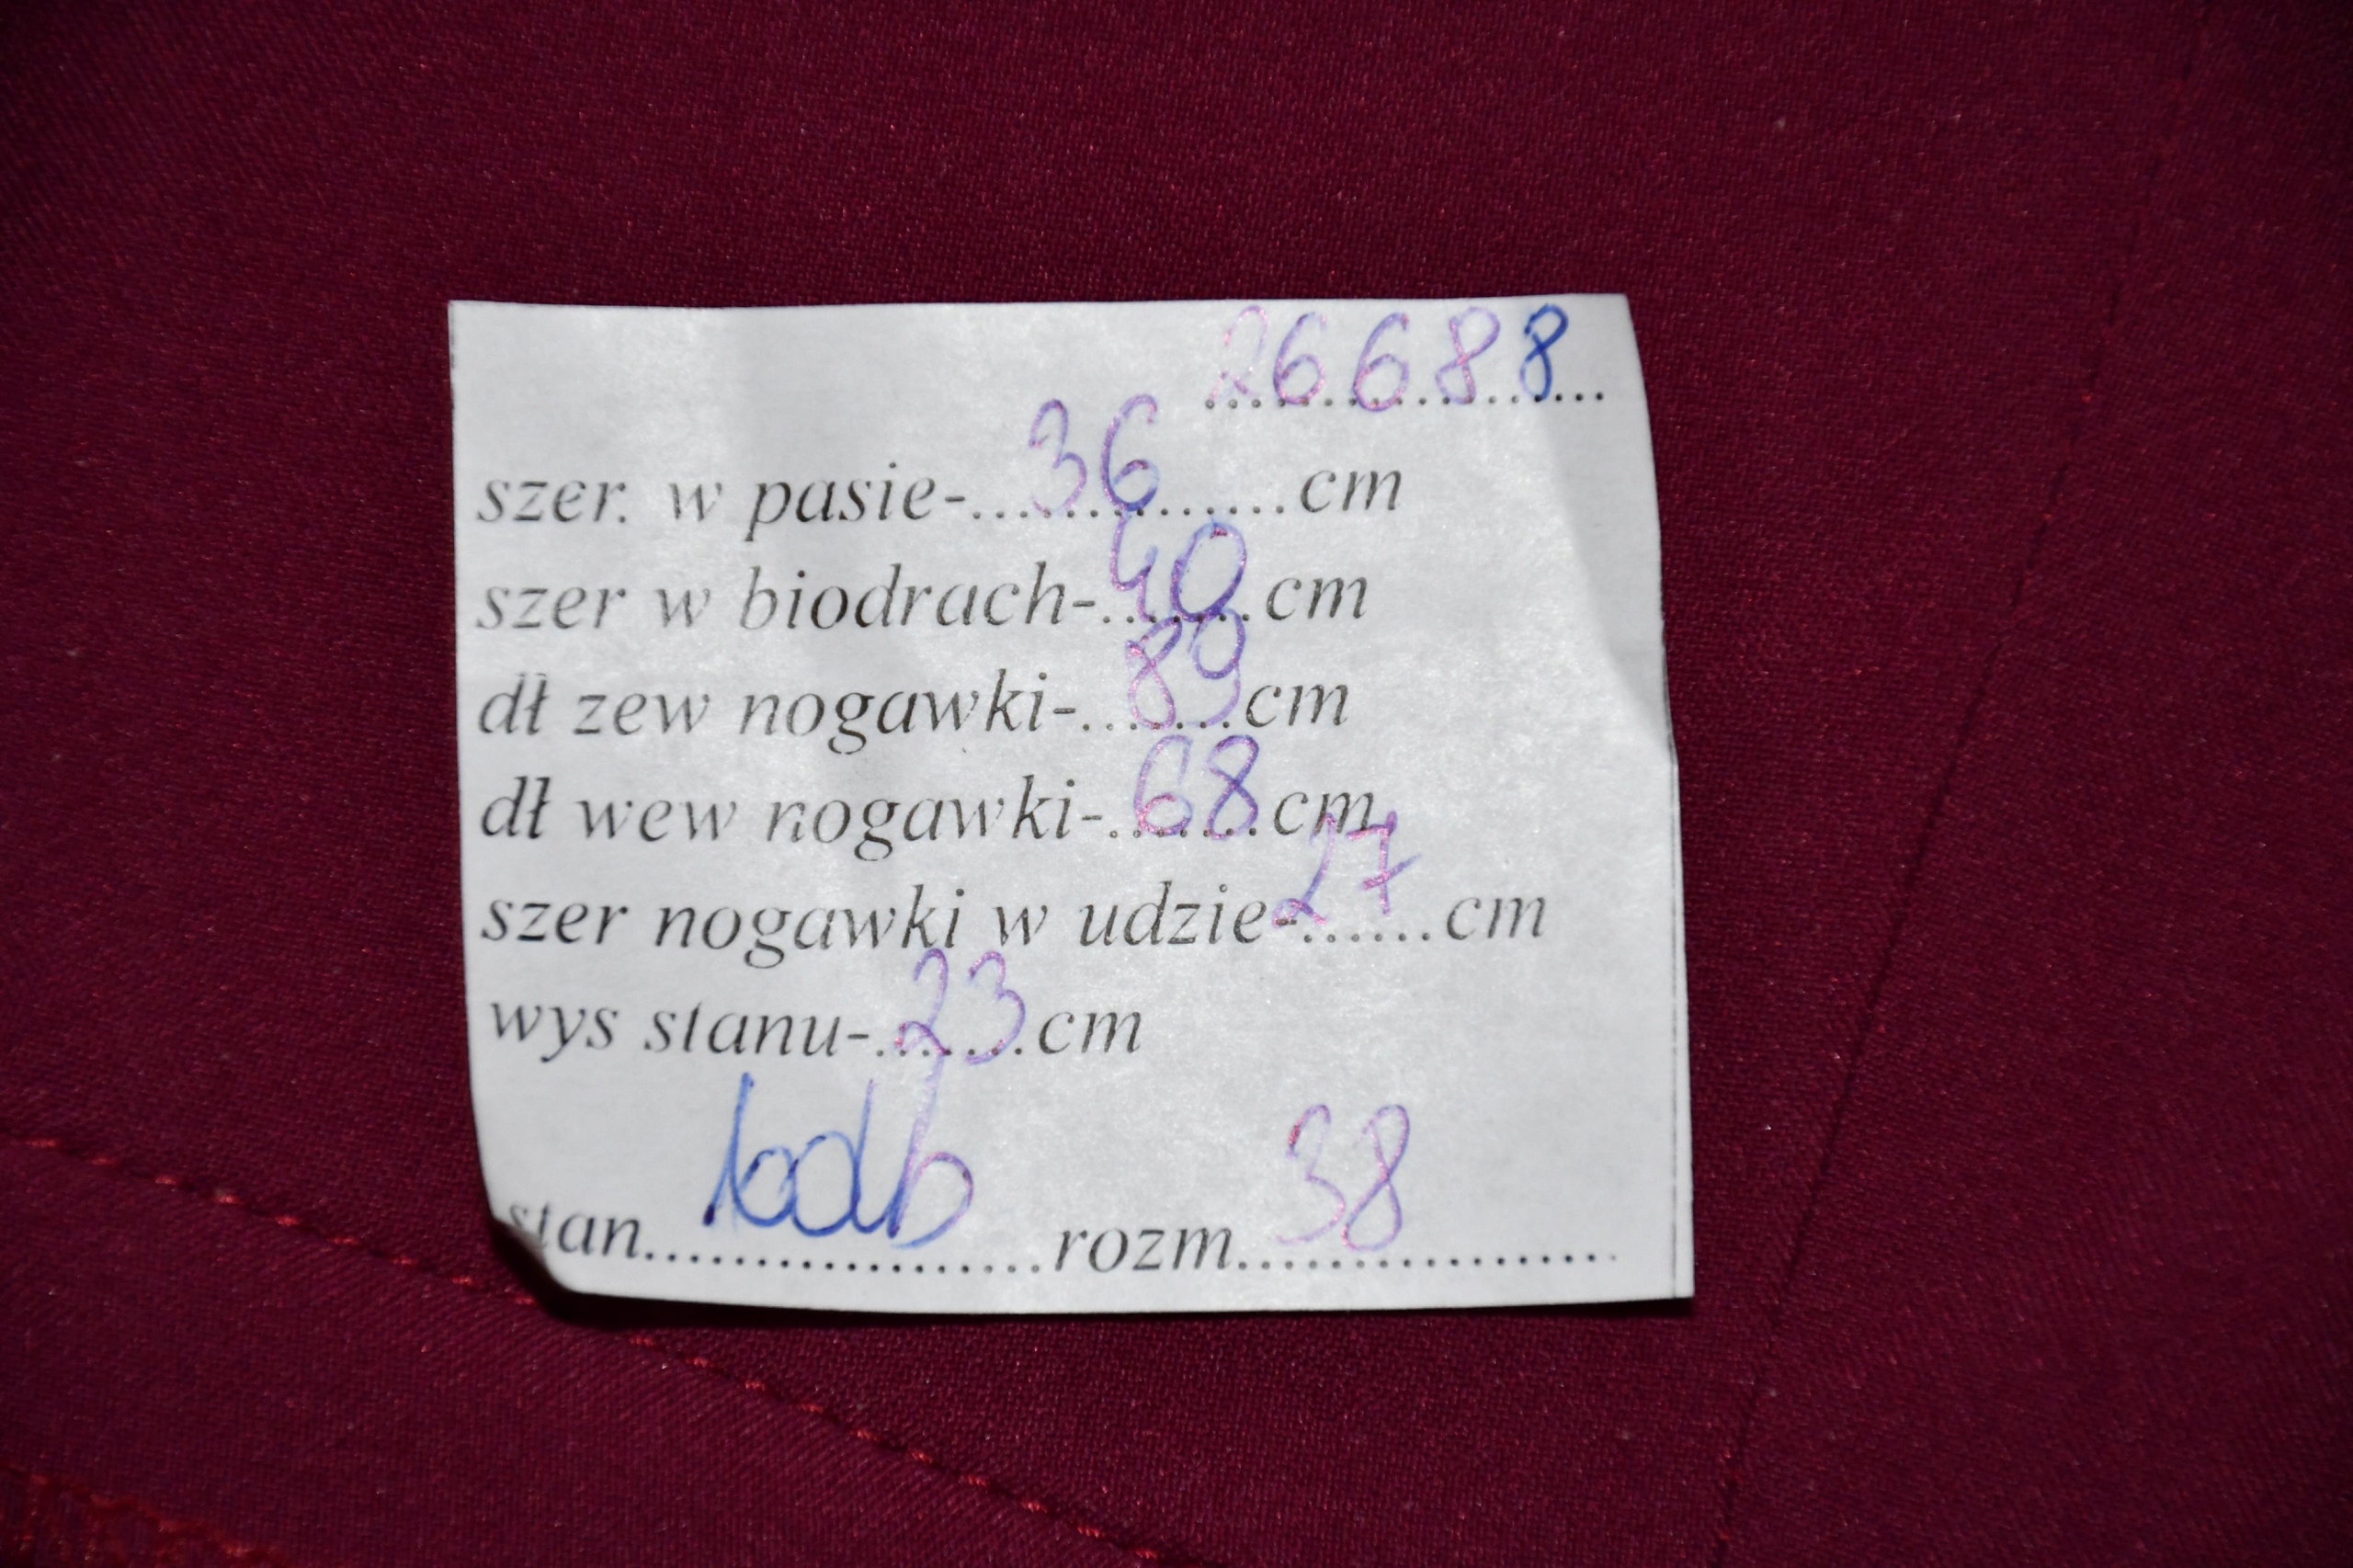 26688
szer. w pasie-...36...........cm
szer w biodrach-..40..cm
dł zew nogawki-...89..cm
dł wew nogawki-..68..cm
szer nogawki w udzie-27......cm
wys stanu-.23.cm
stan....bdb..............rozm....38.............